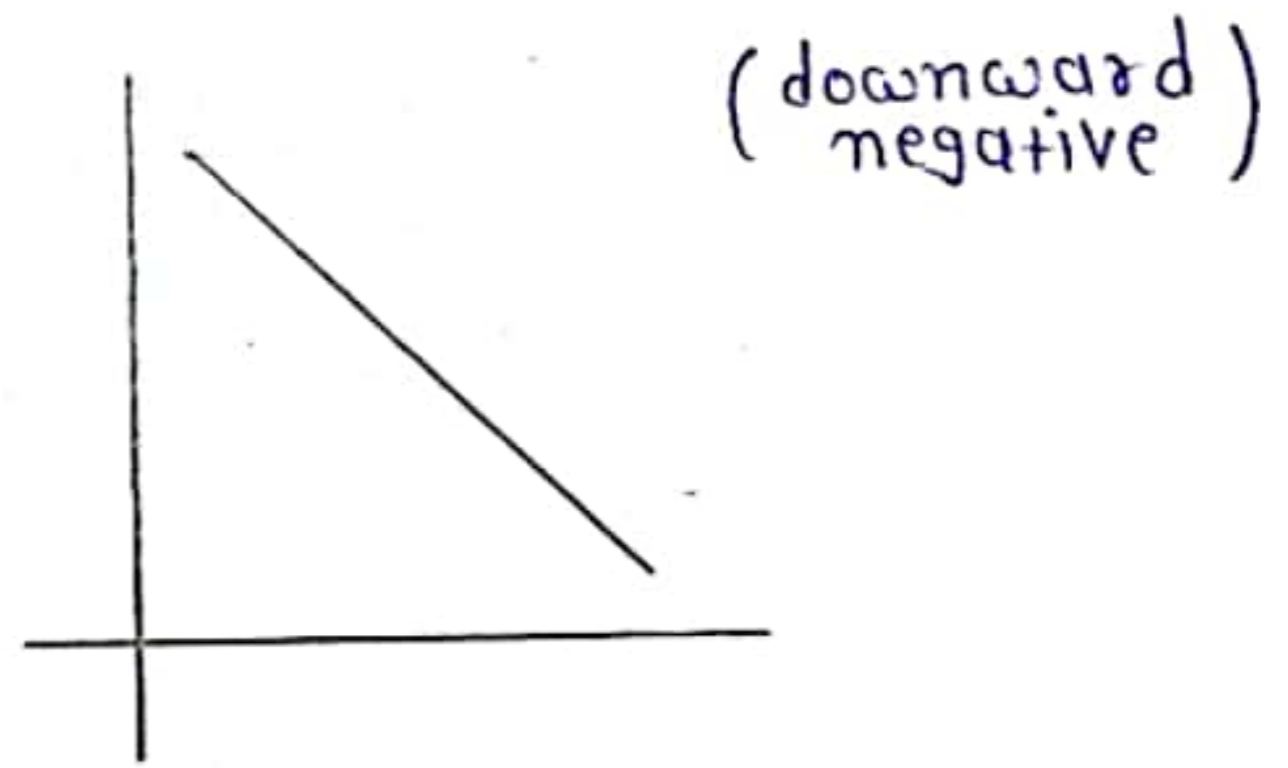 (downward
negative)